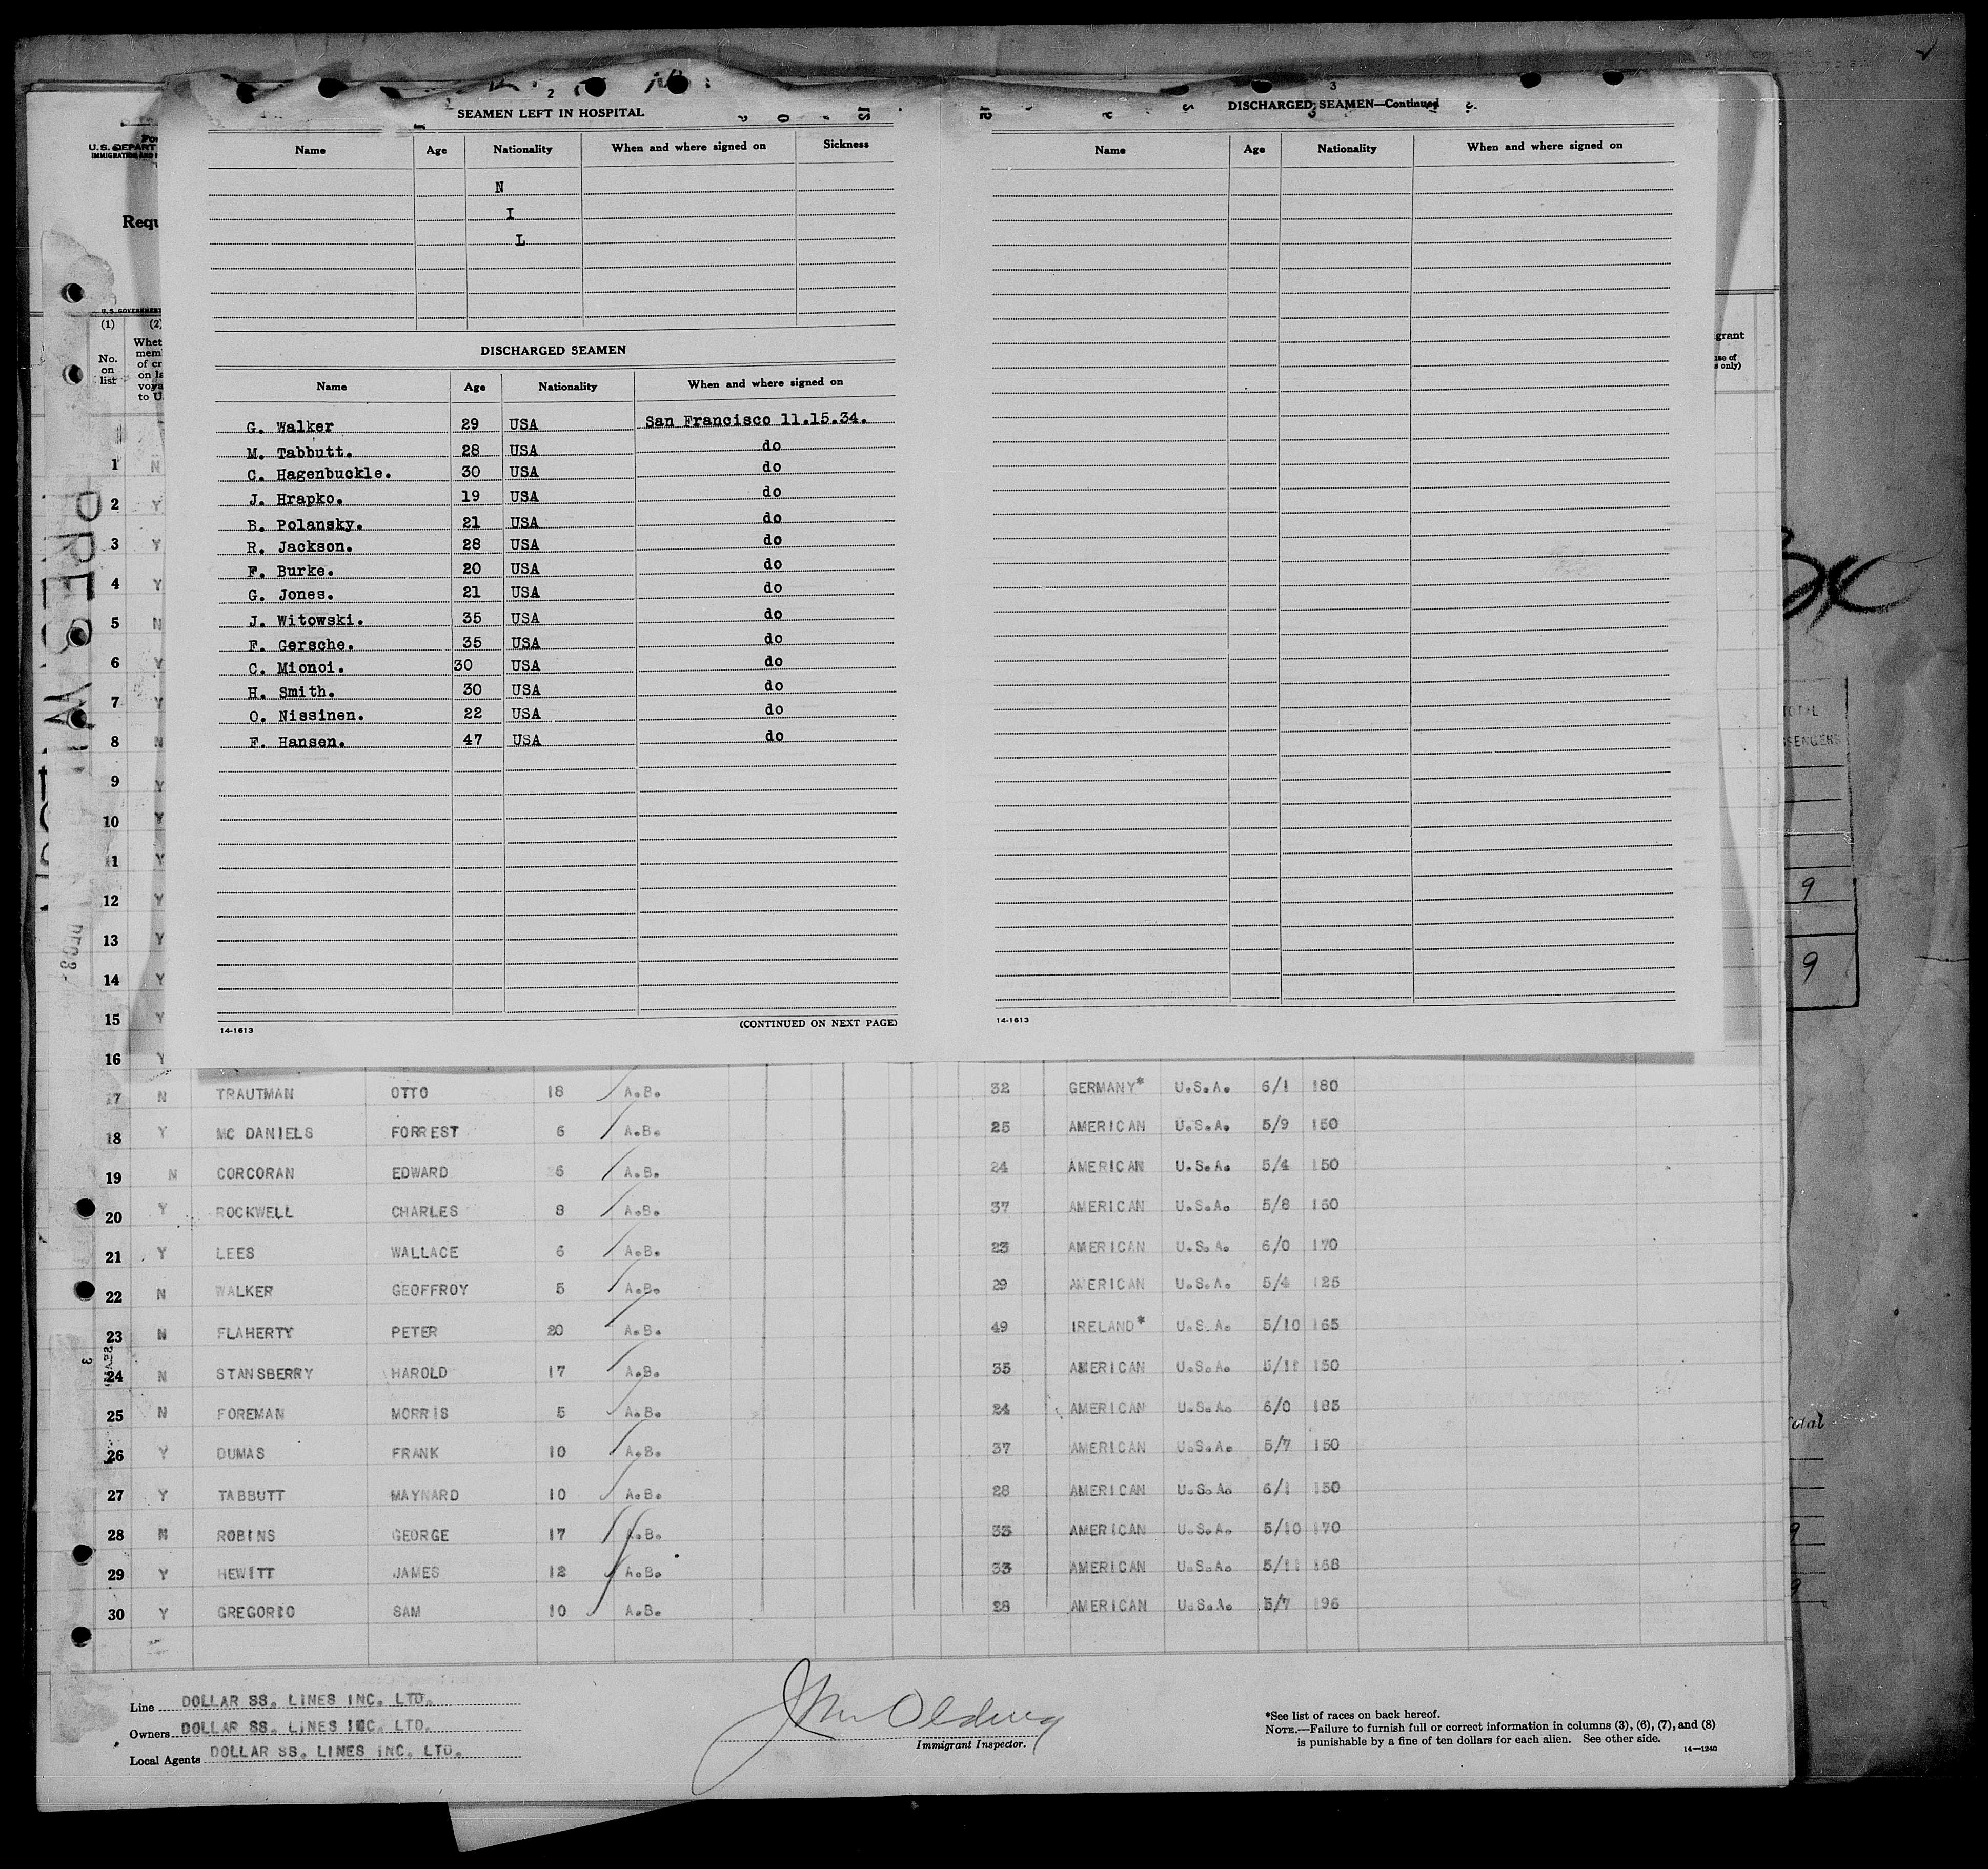 2
SEAMEN LEFT IN HOSPITAL
Name Age Nationality When and where signed on Sickness
N
I
L
DISCHARGED SEAMEN
Name Age Nationality When and where signed on
G. Walker 29 USA San Francisco 11.15.34.
M. Tabbutt. 28 USA do
C. Hagenbuckle. 30 USA do
J. Hrapko. 19 USA do
B. Polansky. 21 USA do
R. Jackson. 28 USA do
F. Burke. 20 USA do
G. Jones. 21 USA do
J. Witowski. 35 USA do
F. Gersche. 35 USA do
C. Mionoi. 30 USA do
H. Smith. 30 USA do
O. Nissinen. 22 USA do
F. Hansen. 47 USA do
14-1613 (CONTINUED ON NEXT PAGE)
3
DISCHARGED SEAMEN—Continued
Name Age Nationality When and where signed on
14-1613
U.S. DEPART
Requ
U.S. GOVERNMENT
(1) (2)
No.
on
list
Whet
mem
of cr
on la
voya
to U.
grant
only)
PRES. W
1 N
2 Y
3 Y
4 Y
5 N
6 Y
7 Y
8 N
9 Y
10 Y
11 Y
12 Y
13 Y
14 Y
15 Y
16 Y
17 N TRAUTMAN OTTO 18 A.B. 32 GERMANY* U.S.A. 6/1 180
18 Y MC DANIELS FORREST 6 A.B. 25 AMERICAN U.S.A. 5/9 150
19 N CORCORAN EDWARD 6 A.B. 24 AMERICAN U.S.A. 5/4 150
20 Y ROCKWELL CHARLES 8 A.B. 37 AMERICAN U.S.A. 5/8 160
21 Y LEES WALLACE 6 A.B. 23 AMERICAN U.S.A. 6/0 170
22 N WALKER GEOFFROY 5 A.B. 29 AMERICAN U.S.A. 5/4 125
23 N FLAHERTY PETER 20 A.B. 49 IRELAND* U.S.A. 5/10 165
24 N STANSBERRY HAROLD 17 A.B. 35 AMERICAN U.S.A. 5/11 150
25 N FOREMAN MORRIS 5 A.B. 24 AMERICAN U.S.A. 6/0 185
26 Y DUMAS FRANK 10 A.B. 37 AMERICAN U.S.A. 5/7 150
27 Y TABBUTT MAYNARD 10 A.B. 28 AMERICAN U.S.A. 6/1 150
28 N ROBINS GEORGE 17 A.B. 33 AMERICAN U.S.A. 5/10 170
29 Y HEWITT JAMES 12 A.B. 33 AMERICAN U.S.A. 5/11 168
30 Y GREGORIO SAM 10 A.B. 28 AMERICAN U.S.A. 5/7 196
9
9
Line DOLLAR SS. LINES INC. LTD.
Owners DOLLAR SS. LINES INC. LTD.
Local Agents DOLLAR SS. LINES INC. LTD.
Immigrant Inspector.
*See list of races on back hereof.
NOTE.—Failure to furnish full or correct information in columns (3), (6), (7), and (8)
is punishable by a fine of ten dollars for each alien. See other side.
14—1240